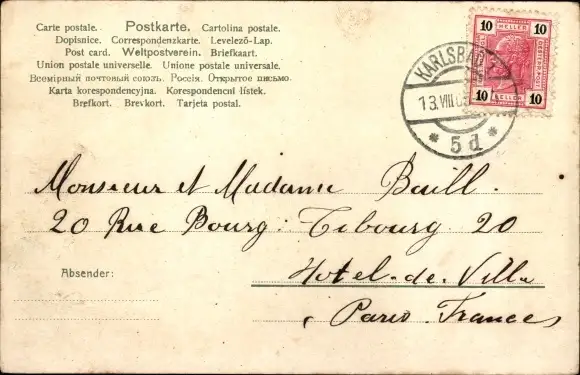 Carte postale. Postkarte. Cartolina postale.
Dopisnice. Correspondenzkarte. Levelező-Lap.
Post card. Weltpostverein. Briefkaart.
Union postale universelle. Unione postale universale.
Всемірный почтовый союзъ. Россія. Открытое письмо.
Karta korespondencyjna. Korespondenční lístek.
Brefkort. Brevkort. Tarjeta postal.
10 HELLER 10
10 HELLER 10
KARLSBAD
13.VIII.05
* 5d *
Monsieur et Madame Baill.
20 Rue Bourg: Tibourg 20
Absender:
Hotel-de-Ville
Paris. France